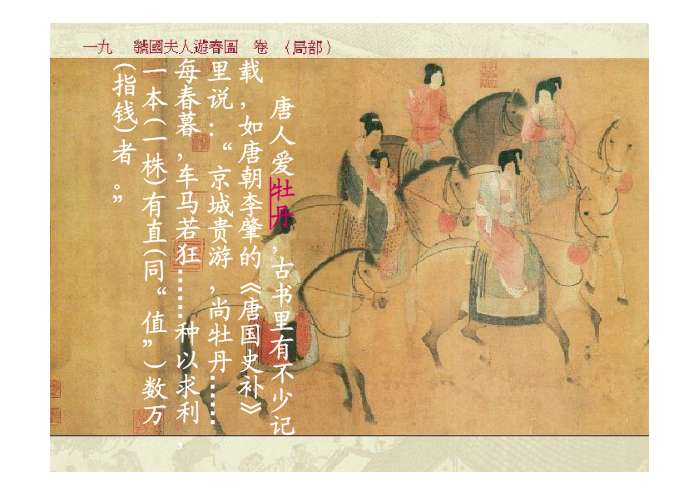 一九 虢國夫人遊春圖 卷 （局部）
唐人爱牡丹，古书里有不少记
载，如唐朝李肇的《唐国史补》
里说：“京城贵游，尚牡丹……
每春暮，车马若狂……种以求利，
一本(一株)有直(同“值”)数万
(指钱)者。”